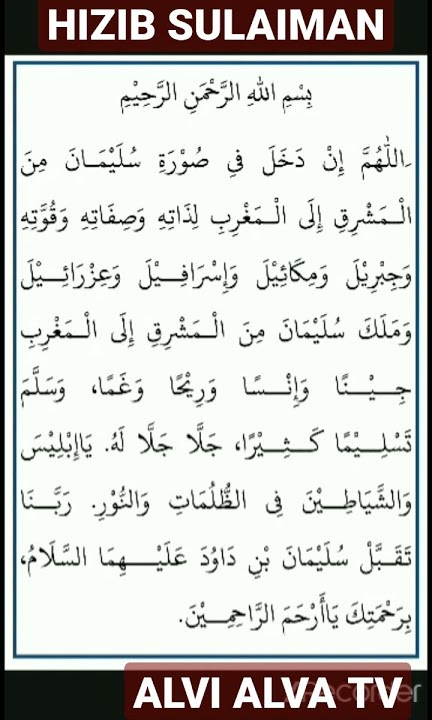 HIZIB SULAIMAN
بِسْمِ اللهِ الرَّحْمَنِ الرَّحِيْمِ
اَللّٰهُمَّ إِنْ دَخَلَ فِي صُوْرَةِ سُلَيْمَانَ مِنَ
الْمَشْرِقِ إِلَى الْمَغْرِبِ لِذَاتِهِ وَصِفَاتِهِ وَقُوَّتِهِ
وَجِبْرِيْلَ وَمِكَائِيْلَ وَإِسْرَافِيْلَ وَعِزْرَائِيْلَ
وَمَلَكَ سُلَيْمَانَ مِنَ الْمَشْرِقِ إِلَى الْمَغْرِبِ
جِيْنًا وَإِنْسًا وَرِيْحًا وَغَمًا، وَسَلَّمَ
تَسْلِيْمًا كَثِيْرًا، جَلَّا جَلَّا لَهُ. يَاإِبْلِيْسَ
وَالشَّيَاطِيْنَ فِى الظُّلُمَاتِ وَالنُّوْرِ. رَبَّنَا
تَقَبَّلْ سُلَيْمَانَ بْنِ دَاوُدَ عَلَيْهِمَا السَّلَامُ،
بِرَحْمَتِكَ يَاأَرْحَمَ الرَّاحِمِيْنَ.
ALVI ALVA TV